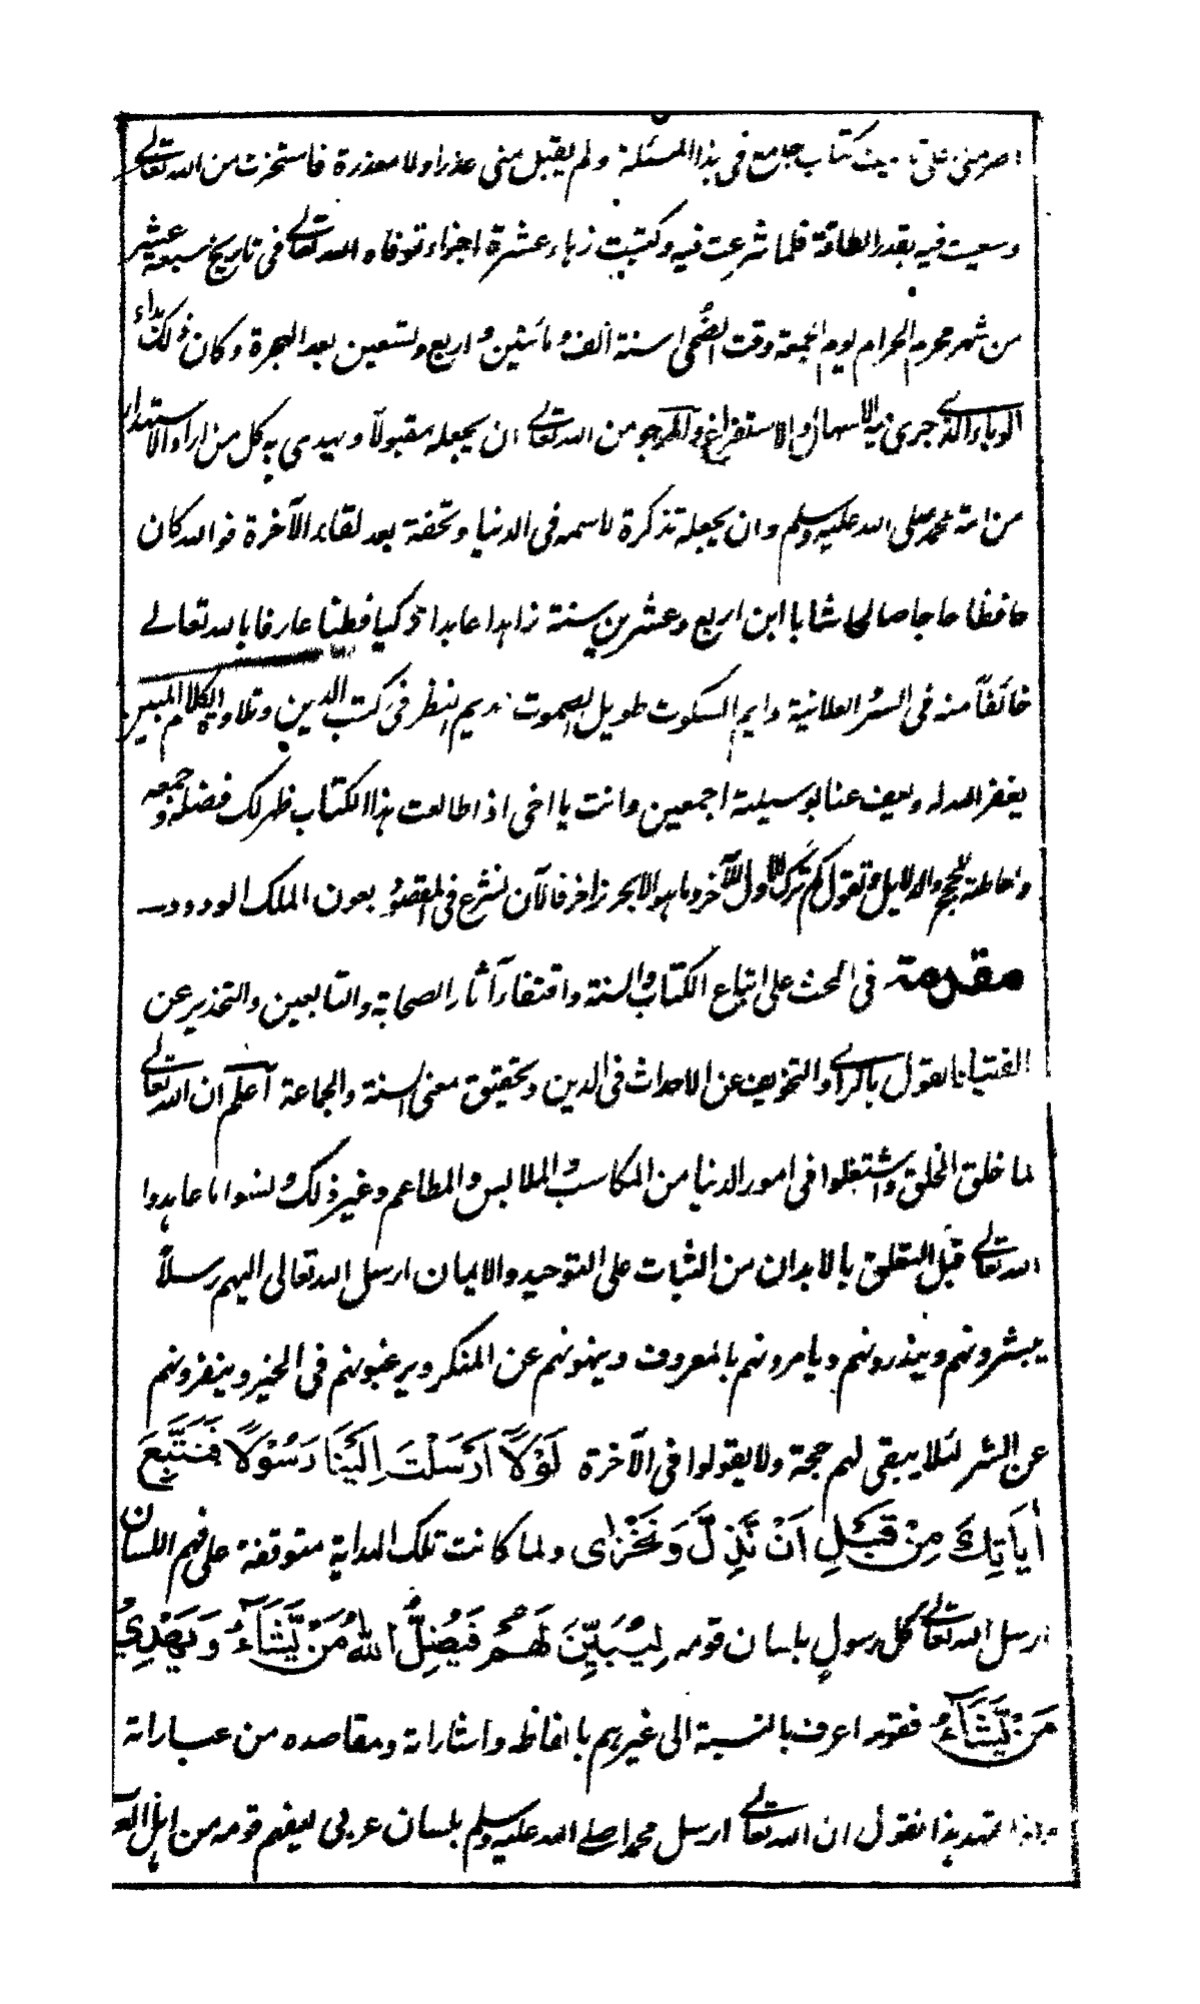 اصر منى على تاليف كتاب جامع فى هذا المسئلة ولم يقبل منى عذرا ولا معذرة فاستخرت من الله تعالى
وسعيت فيه بقدر الطاقة فلما شرعت فيه وكتبت زهاء عشرة اجزاء توفاه الله تعالى فى تاريخ سبعة عشر
من شهر محرم الحرام يوم الجمعة وقت الضحى سنة الف ومائتين واربع وتسعين بعد الهجرة وكان ذلك بداء
الوباء الذى جرى به الاسهال والاستفراغ والمرجو من الله تعالى ان يجعله مقبولا ويهدى به كل من اراد الاستهداء
من امة محمد صلى الله عليه وسلم وان يجعله تذكرة لاسمه فى الدنيا وتحفة بعد لقاء الآخرة فوالله كان
حافظا حاجا صالحا شابا ابن اربع وعشرين سنة زاهدا عابدا ذكيا فطينا عارفا بالله تعالى
خائفا منه فى السر والعلانية دايم السكوت طويل الصموت نديم النظر فى كتب الدين وتلاوة الكلام المبين
يغفر الله له ويعف عنا بوسيلته اجمعين وانت يا اخى اذا طالعت هذا الكتاب ظهر لك فضله وجمعه
واحاطته للحجج والدلايل وتقول كم ترك الاول للآخر وما هو الا بحر زاخر فالآن نشرع فى المقصود بعون الملك الودود
مقدمة فى الحث على اتباع الكتاب والسنة واقتفاء آثار الصحابة والتابعين والتحذير عن
الفتيا بالقول بالرأى والتخويف عن الاحداث فى الدين وتحقيق معنى السنة والجماعة اعلم ان الله تعالى
لما خلق الخلق واشتغلوا فى امور الدنيا من المكاسب والملابس والمطاعم وغير ذلك ونسوا ما عاهدوا
الله تعالى قبل التعلق بالابدان من الثبات على التوحيد والايمان ارسل الله تعالى اليهم رسلاً
يبشرونهم وينذرونهم ويامرونهم بالمعروف وينهونهم عن المنكر ويرغبونهم فى الخير وينفرونهم
عن الشر لئلا يبقى لهم حجة ولا يقولوا فى الآخرة لَوْلَا اَرْسَلْتَ اِلَيْنَا رَسُوْلًا فَنَتَّبِعَ
اٰيَاتِكَ مِنْ قَبْلِ اَنْ نَّذِلَّ وَنَخْزٰى ولما كانت تلك الهداية متوقفة على فهم اللسان
ارسل الله تعالى كل رسولٍ بلسان قومه لِيُبَيِّنَ لَهُمْ فَيُضِلُّ اللهُ مَنْ يَّشَآءُ وَيَهْدِيْ
مَنْ يَّشَآءُ فقومه اعرف بالنسبة الى غيرهم بالفاظه واشاراته ومقاصده من عباراته
واذا تمهد هذا نقول ان الله تعالى ارسل محمدا صلى الله عليه وسلم بلسان عربى ليفهم قومه من اهل